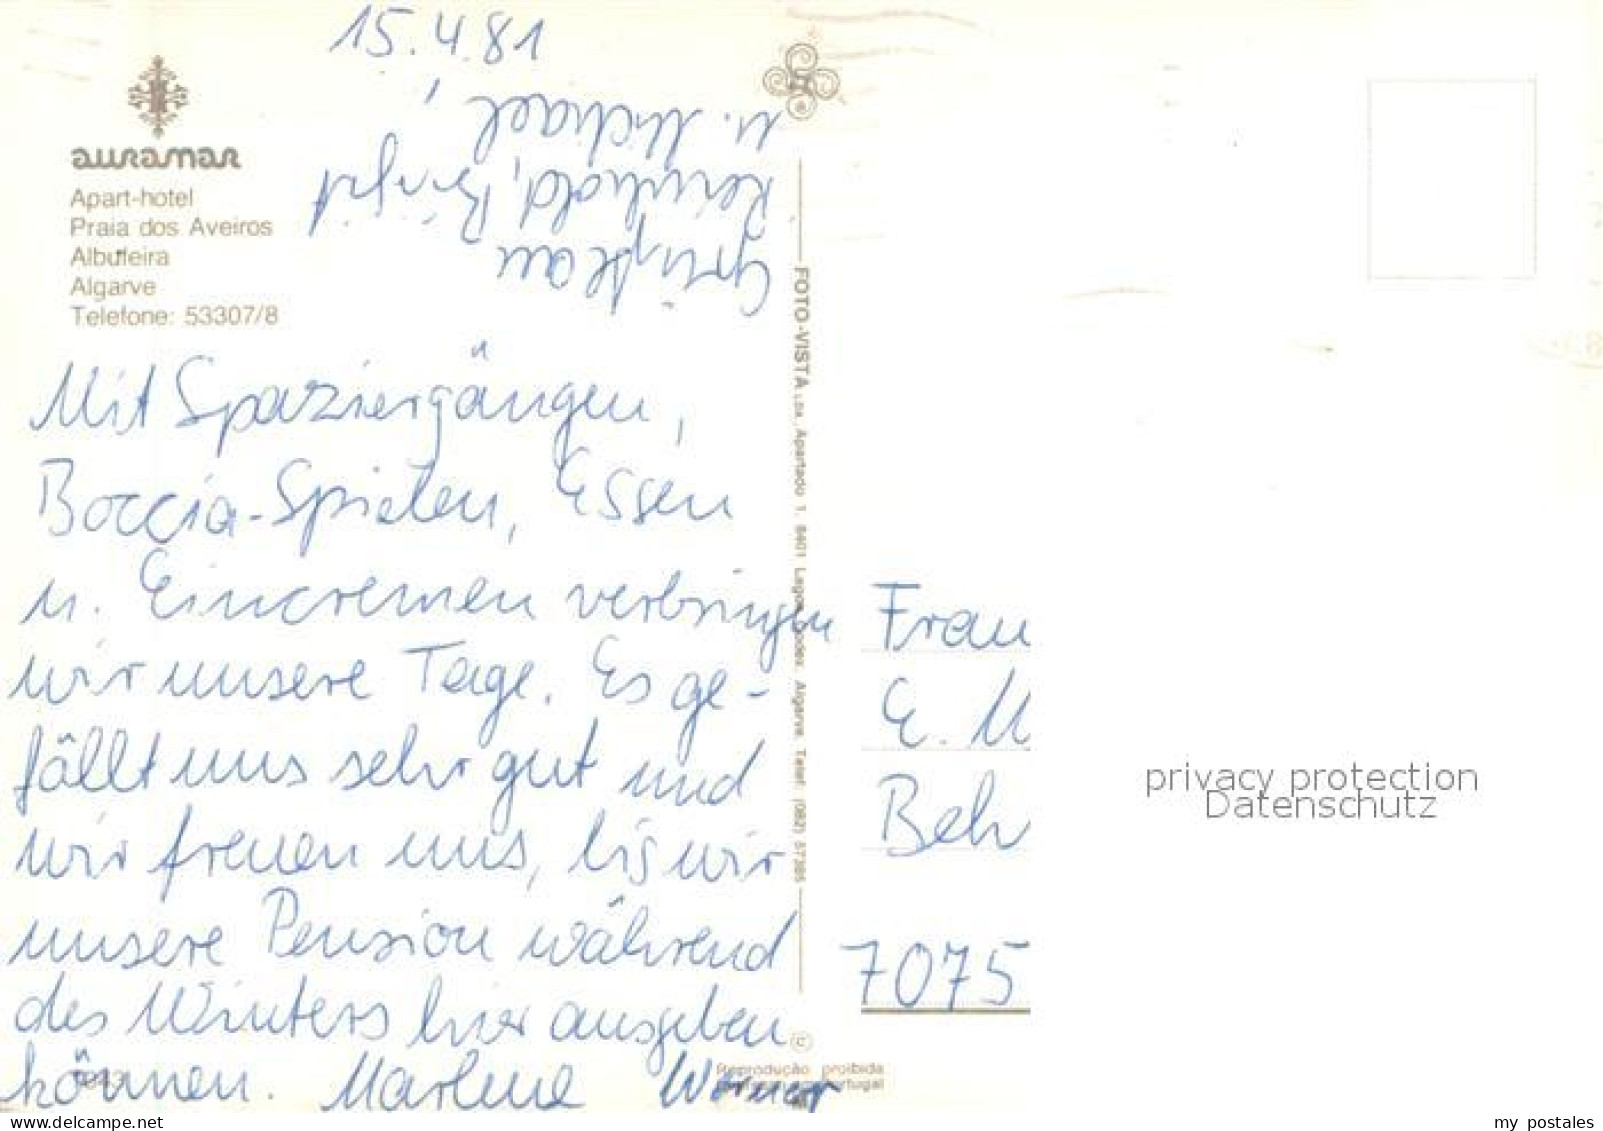 15.4.81
auramar
Apart-hotel
Praia dos Aveiros
Albufeira
Algarve
Telefone: 53307/8
Mit Spaziergängen,
Boccia-Spielen, Essen
u. Eincremen verbringen
wir unsere Tage. Es ge-
fällt uns sehr gut und
wir freuen uns, bis wir
unsere Pension während
des Winters hier ausgeben
können. Marlene Werner
Grüße an
Reinhold, Birgit
u. Michael,
FOTO-VISTA LDA. Apartado 1. 8401 Lagoa Codex Algarve Telef. (082) 57385
©
Reprodução proibida
Portugal
Frau
E. M
Beh
7075
privacy protection
Datenschutz
my postales
www.delcampe.net